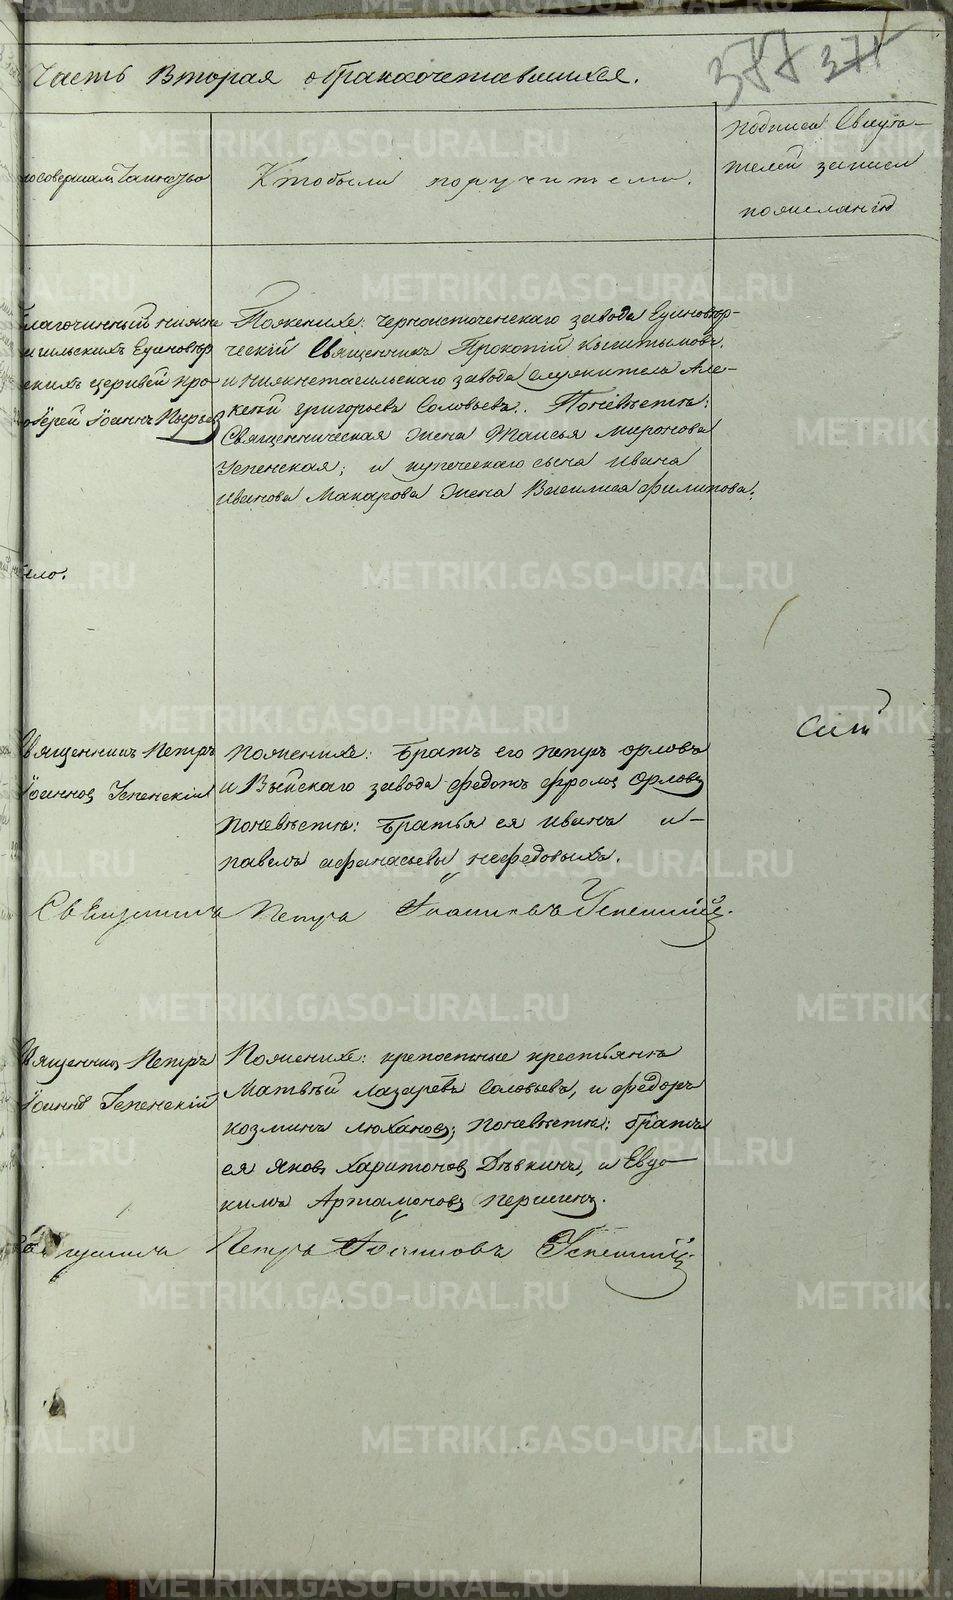 Часть Вторая о бракосочетавшихся.
377 371
кто совершал таинство
Кто были поручители.
подписи Свидѣ-
телей записи
по желанію
Благочинный нижне
тагильскихъ Единовѣр
ческихъ церквей про
тоіерей Іоаннъ Пырьевъ
По женихе: черноисточенскаго завода Единовѣр-
ческій Священникъ Прокопій Кыштымовъ.
и нижнетагильскаго завода служитель Але-
ксѣй григорьевъ Соловьевъ. По невѣсте:
Священническая жена Таисья Миронова
Успенская; и купеческаго сына Ивана
Иванова Макарова жена Василиса Филипова.
было.
Священникъ Петръ
Іоанновъ Успенскій
По женихе: братъ его петръ орловъ
и Выйскаго завода федотъ фроловъ Орловъ
По невѣсте: братья ея иванъ и-
павелъ афанасьевы нефедовыхъ.
Священникъ Петръ Іоанновъ Успенскій.
Священникъ Петръ
Іоанновъ Успенскій
По женихе: крепостные крестьяне
Матвѣй лазаревъ Соловьевъ, и федоръ
козминъ люхановъ; по невѣсте: братъ
ея яковъ харитоновъ Дѣвкинъ, и Евдо-
кимъ Артамоновъ першинъ.
Священникъ Петръ Іоанновъ Успенскій.
METRIKI.GASO-URAL.RU